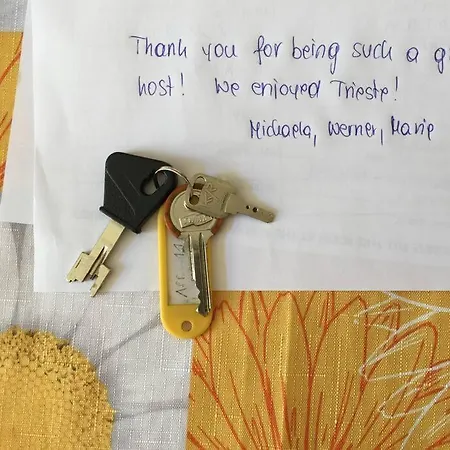 Thank you for being such a g
host! We enjoyed Trieste!
Michaela, Werner, Marie